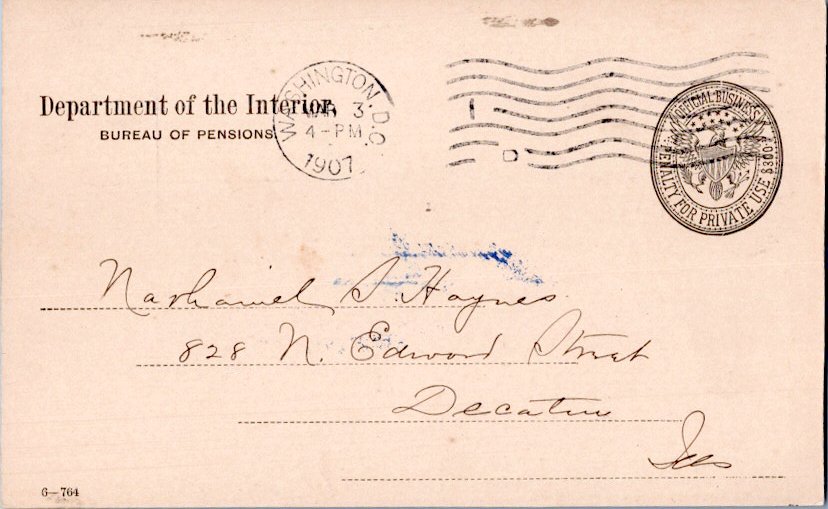 Department of the Interior,
BUREAU OF PENSIONS.
WASHINGTON, D.C.
MAR 3
4-PM
1907
OFFICIAL BUSINESS
PENALTY FOR PRIVATE USE $300
Nathaniel S. Haynes
828 N. Edward Street
Decatur
Ills
6—764